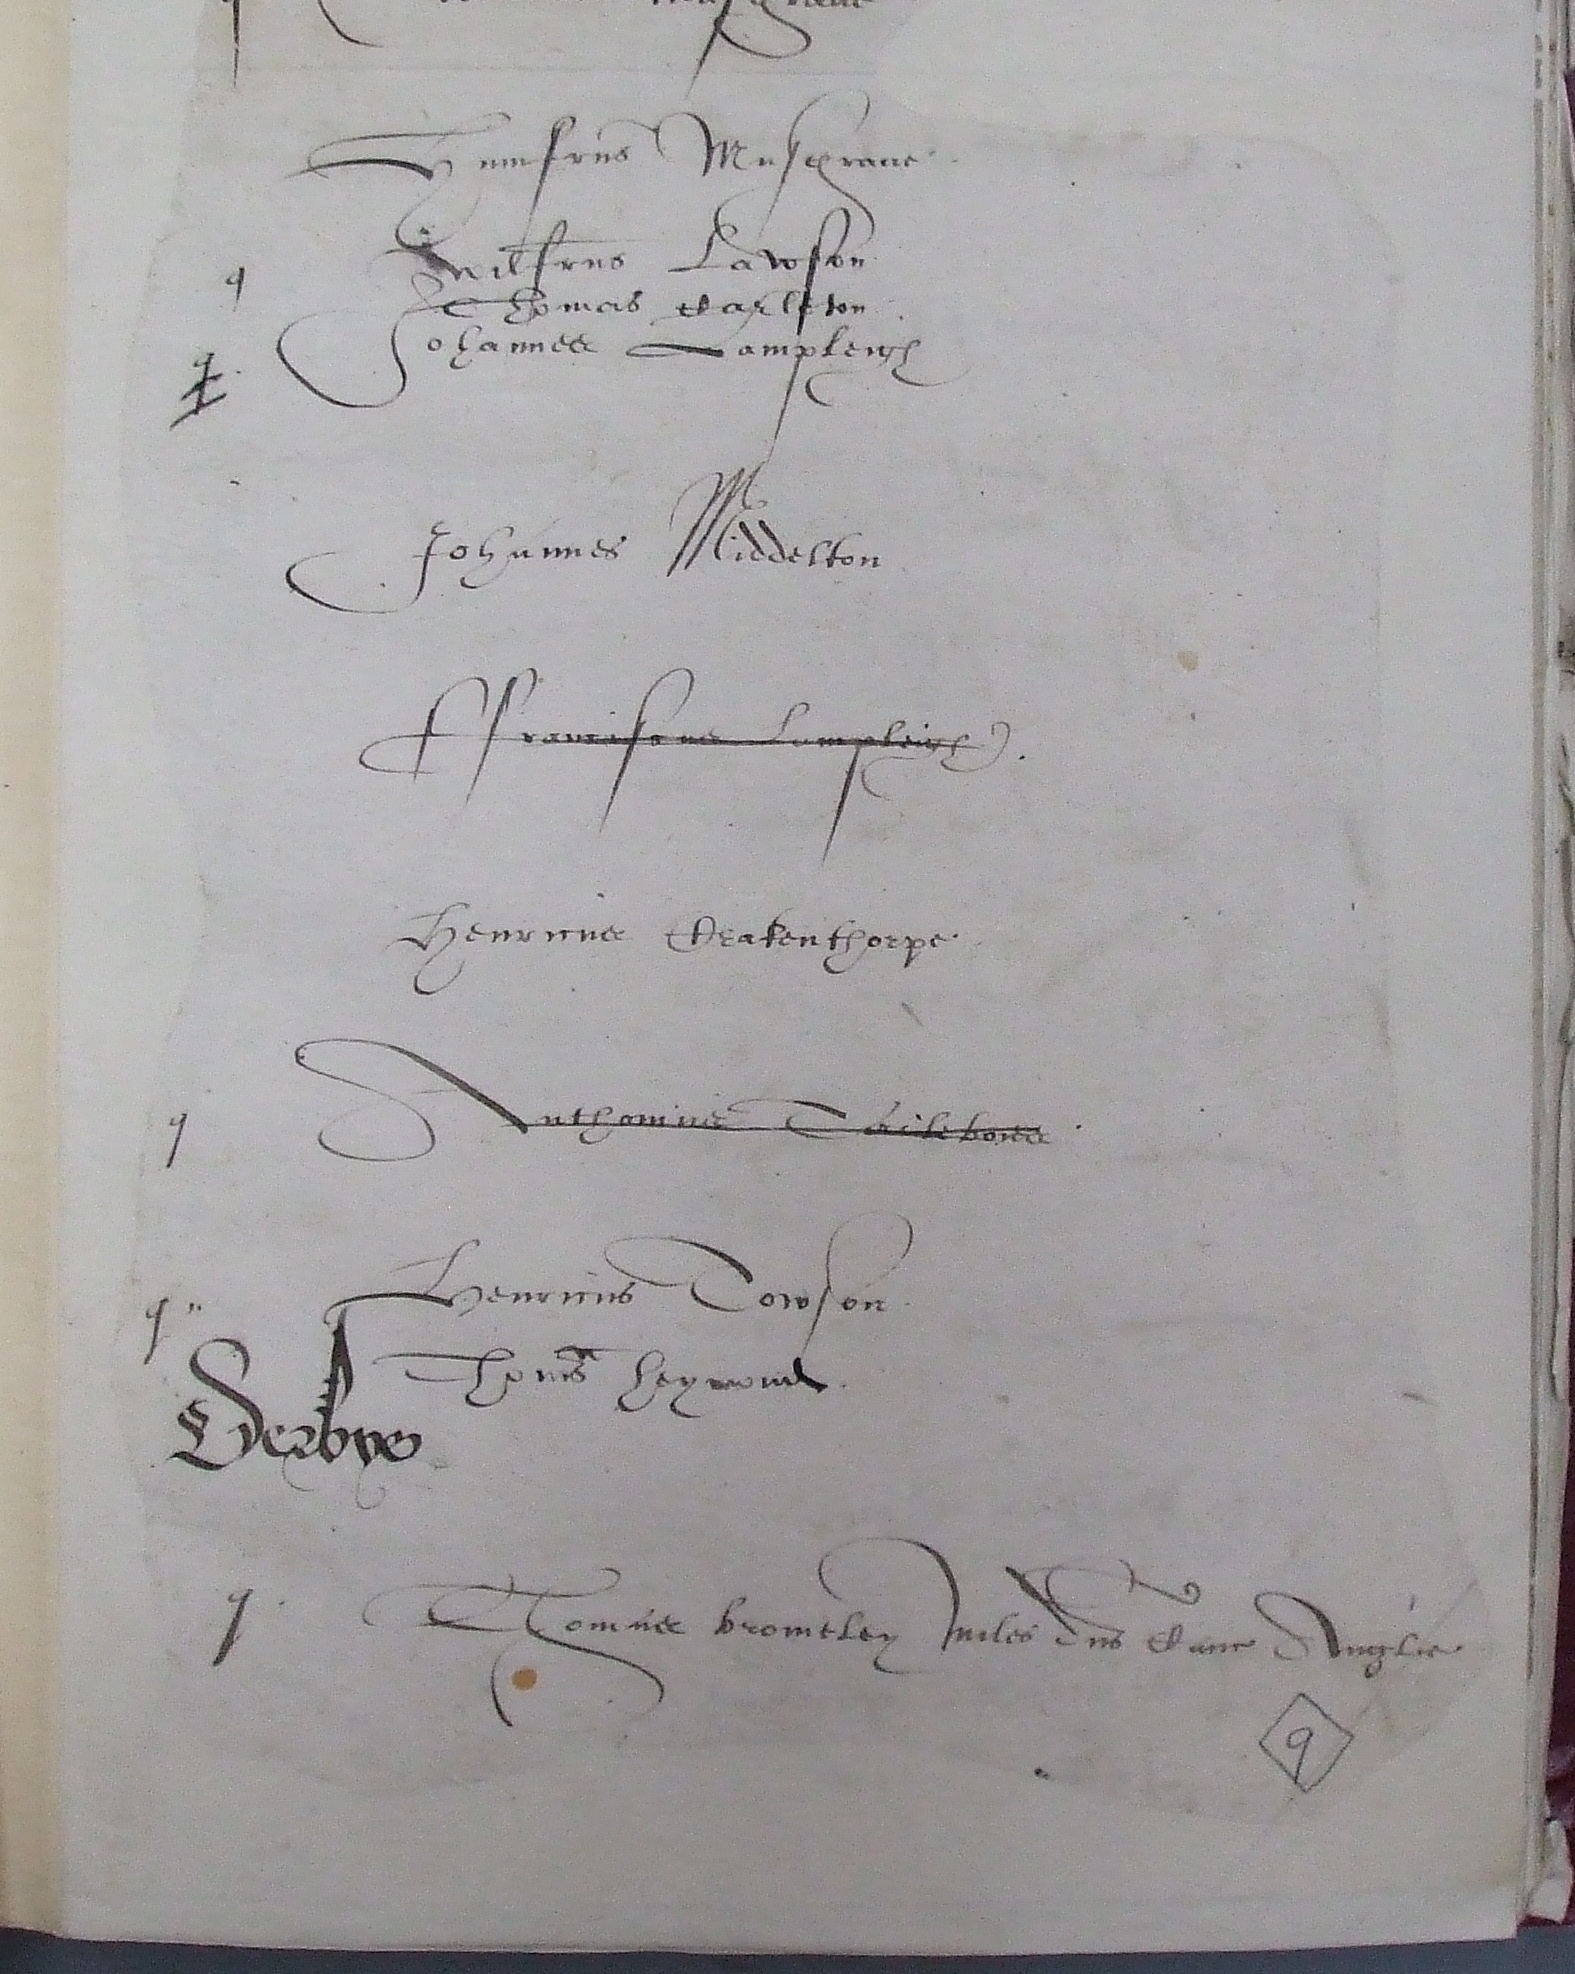 Humfrus Musgrave
q Wilfrus Lawson
Thomas Carleton
q Johannes Lampleigh
Johannes Middelton
ffranciscus Lampleigh
Henricus Crakenthorpe
q Anthonius
q Henricus Towson
Thomas
Derbye
q Thomas bromeley miles dns Canc Anglie
9